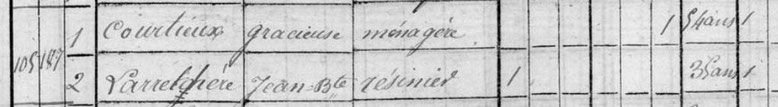 1 Courtieux gracieuse ménagère 1 54 ans 1
105 187
2 Larretchère Jean-Bte résinier 1 35 ans 1